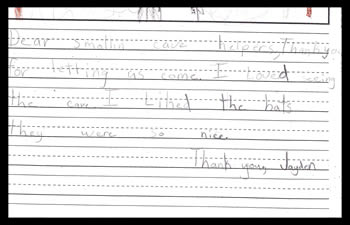 Dear smallin cave helpers, Thank you
for letting us come. I Loved seeing
the cave I Liked the bats
they were so nice.
Thank you, Jayden